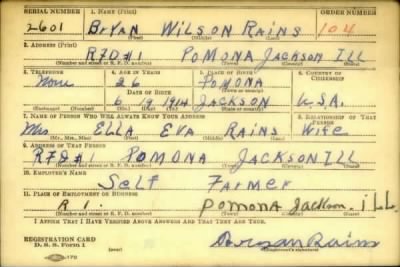 SERIAL NUMBER 1. NAME (Print) ORDER NUMBER
2601 BRYAN WILSON RAINS 104
(First) (Middle) (Last)
2. ADDRESS (Print)
RFD#1 POMONA JACKSON ILL
(Number and street or R. F. D. number) (Town) (County) (State)
3. TELEPHONE 4. AGE IN YEARS 5. PLACE OF BIRTH 6. COUNTRY OF CITIZENSHIP
None 26 POMONA
DATE OF BIRTH (Town or county)
6 19 1914 JACKSON U.S.A.
(Exchange) (Number) (Mo.) (Day) (Yr.) (State or country)
7. NAME OF PERSON WHO WILL ALWAYS KNOW YOUR ADDRESS 8. RELATIONSHIP OF THAT PERSON
Mrs ELLA EVA RAINS Wife
(Mr., Mrs., Miss) (First) (Middle) (Last)
9. ADDRESS OF THAT PERSON
RFD#1 POMONA JACKSON ILL
(Number and street or R. F. D. number) (Town) (County) (State)
10. EMPLOYER'S NAME
Self Farmer
11. PLACE OF EMPLOYMENT OR BUSINESS
R 1. Pomona Jackson. ILL.
(Number and street or R. F. D. number) (Town) (County) (State)
I AFFIRM THAT I HAVE VERIFIED ABOVE ANSWERS AND THAT THEY ARE TRUE.
REGISTRATION CARD
D. S. S. Form 1 Rains
(Registrant's signature)